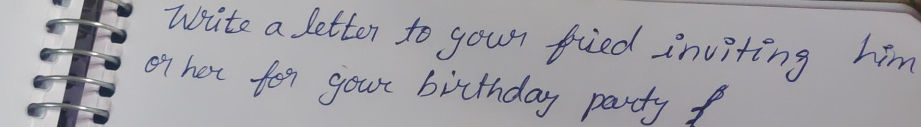 Write a letter to your fried inviting him
or her for your birthday party